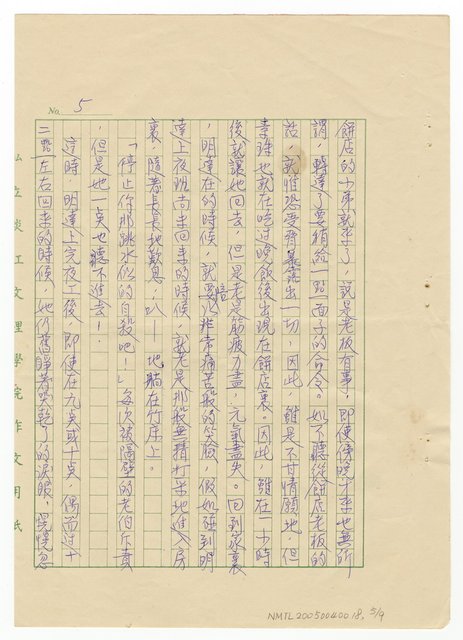 No. 5
餅店的小弟就來了，說是老板有事，即使傍晚才來也無所
謂，轉達了要稍給一點面子的命令。如不聽從餅店老板的
話，就惟恐要暴露出一切，因此，雖是不甘情願地，但
素珠也就在吃過晚飯後出現在餅店裏。因此，雖在一小時
後就讓她回去，但是老是筋疲力盡，元氣盡失。回到家裏
，明達在的時候，就要以非常痛苦般的笑臉，假如碰到明
達上夜班尚未回來的時候，就老是那般無精打采地進入房
裏，隨著長長地歎息，趴一地躺在竹床上。
「停止你那跳水似的自殺吧！」每次被隔壁的老伯斥責
，但是她一莫也聽不進去！
這時，明達上完夜工後，即使在九莫或十莫，偶而過十
二點左右回來的時候，她仍舊睜著哭乾了的淚眼，慌慌忽
私立淡江文理學院作文用紙
NMTL20050040018, 5/9